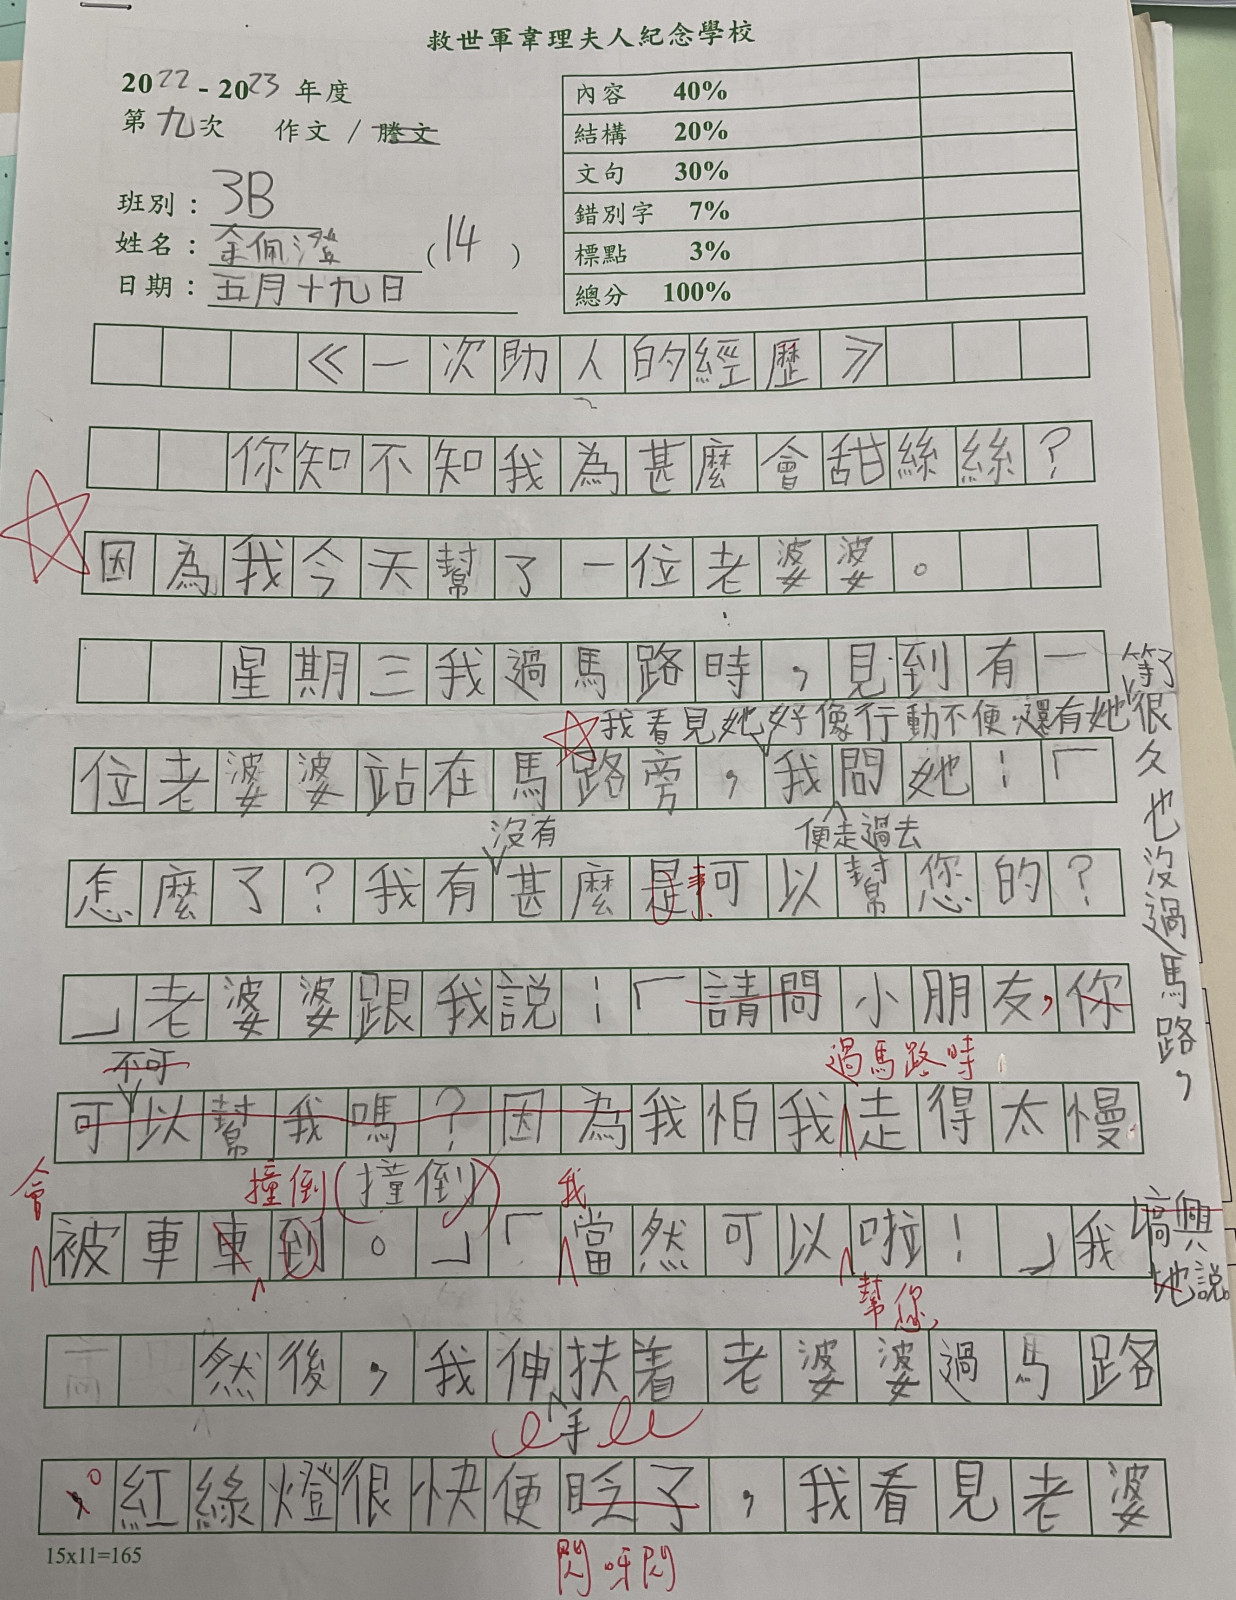 救世軍韋理夫人紀念學校
2022 - 2023 年度
第九次 作文 / 謄文
班別：3B
姓名：余佩澄 (14)
日期：五月十九日
內容 40%
結構 20%
文句 30%
錯別字 7%
標點 3%
總分 100%
《一次助人的經歷》
你知不知我為甚麼會甜絲絲？
因為我今天幫了一位老婆婆。
星期三我過馬路時，見到有一
我看見她好像行動不便，還有她等了很久也沒過馬路，
位老婆婆站在馬路旁，我問她：「
沒有 便走過去
怎麼了？我有甚麼是事可以幫您的？
」老婆婆跟我說：「請問小朋友，你
不可 過馬路時
可以幫我嗎？因為我怕我走得太慢
會 撞倒(撞倒) 我
被車車到。」「當然可以啦！」我
興地說。
幫您，
然後，我伸扶着老婆婆過馬路
手
。紅綠燈很快便眨了，我看見老婆
閃呀閃
15x11=165